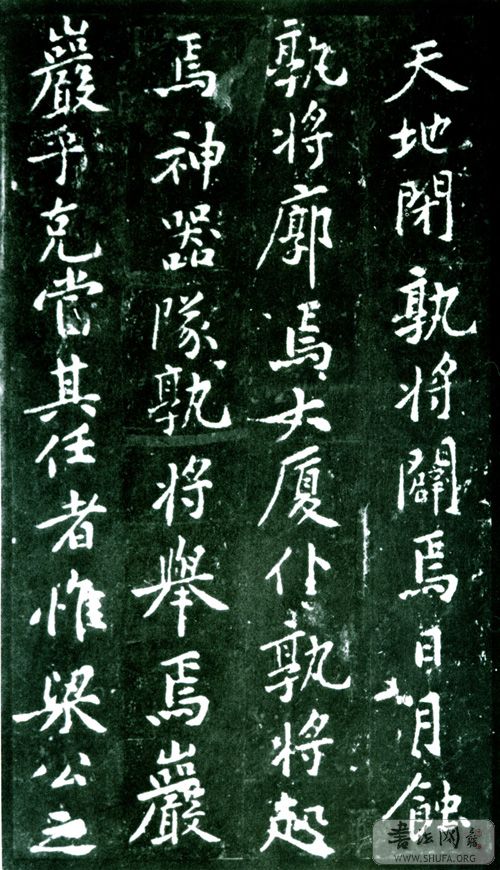 天地閉孰將闢焉日月蝕
孰將廓焉大廈仆孰將起
焉神器隊孰將舉焉巖
巖乎克當其任者惟梁公之
書法网
WWW.SHUFA.ORG